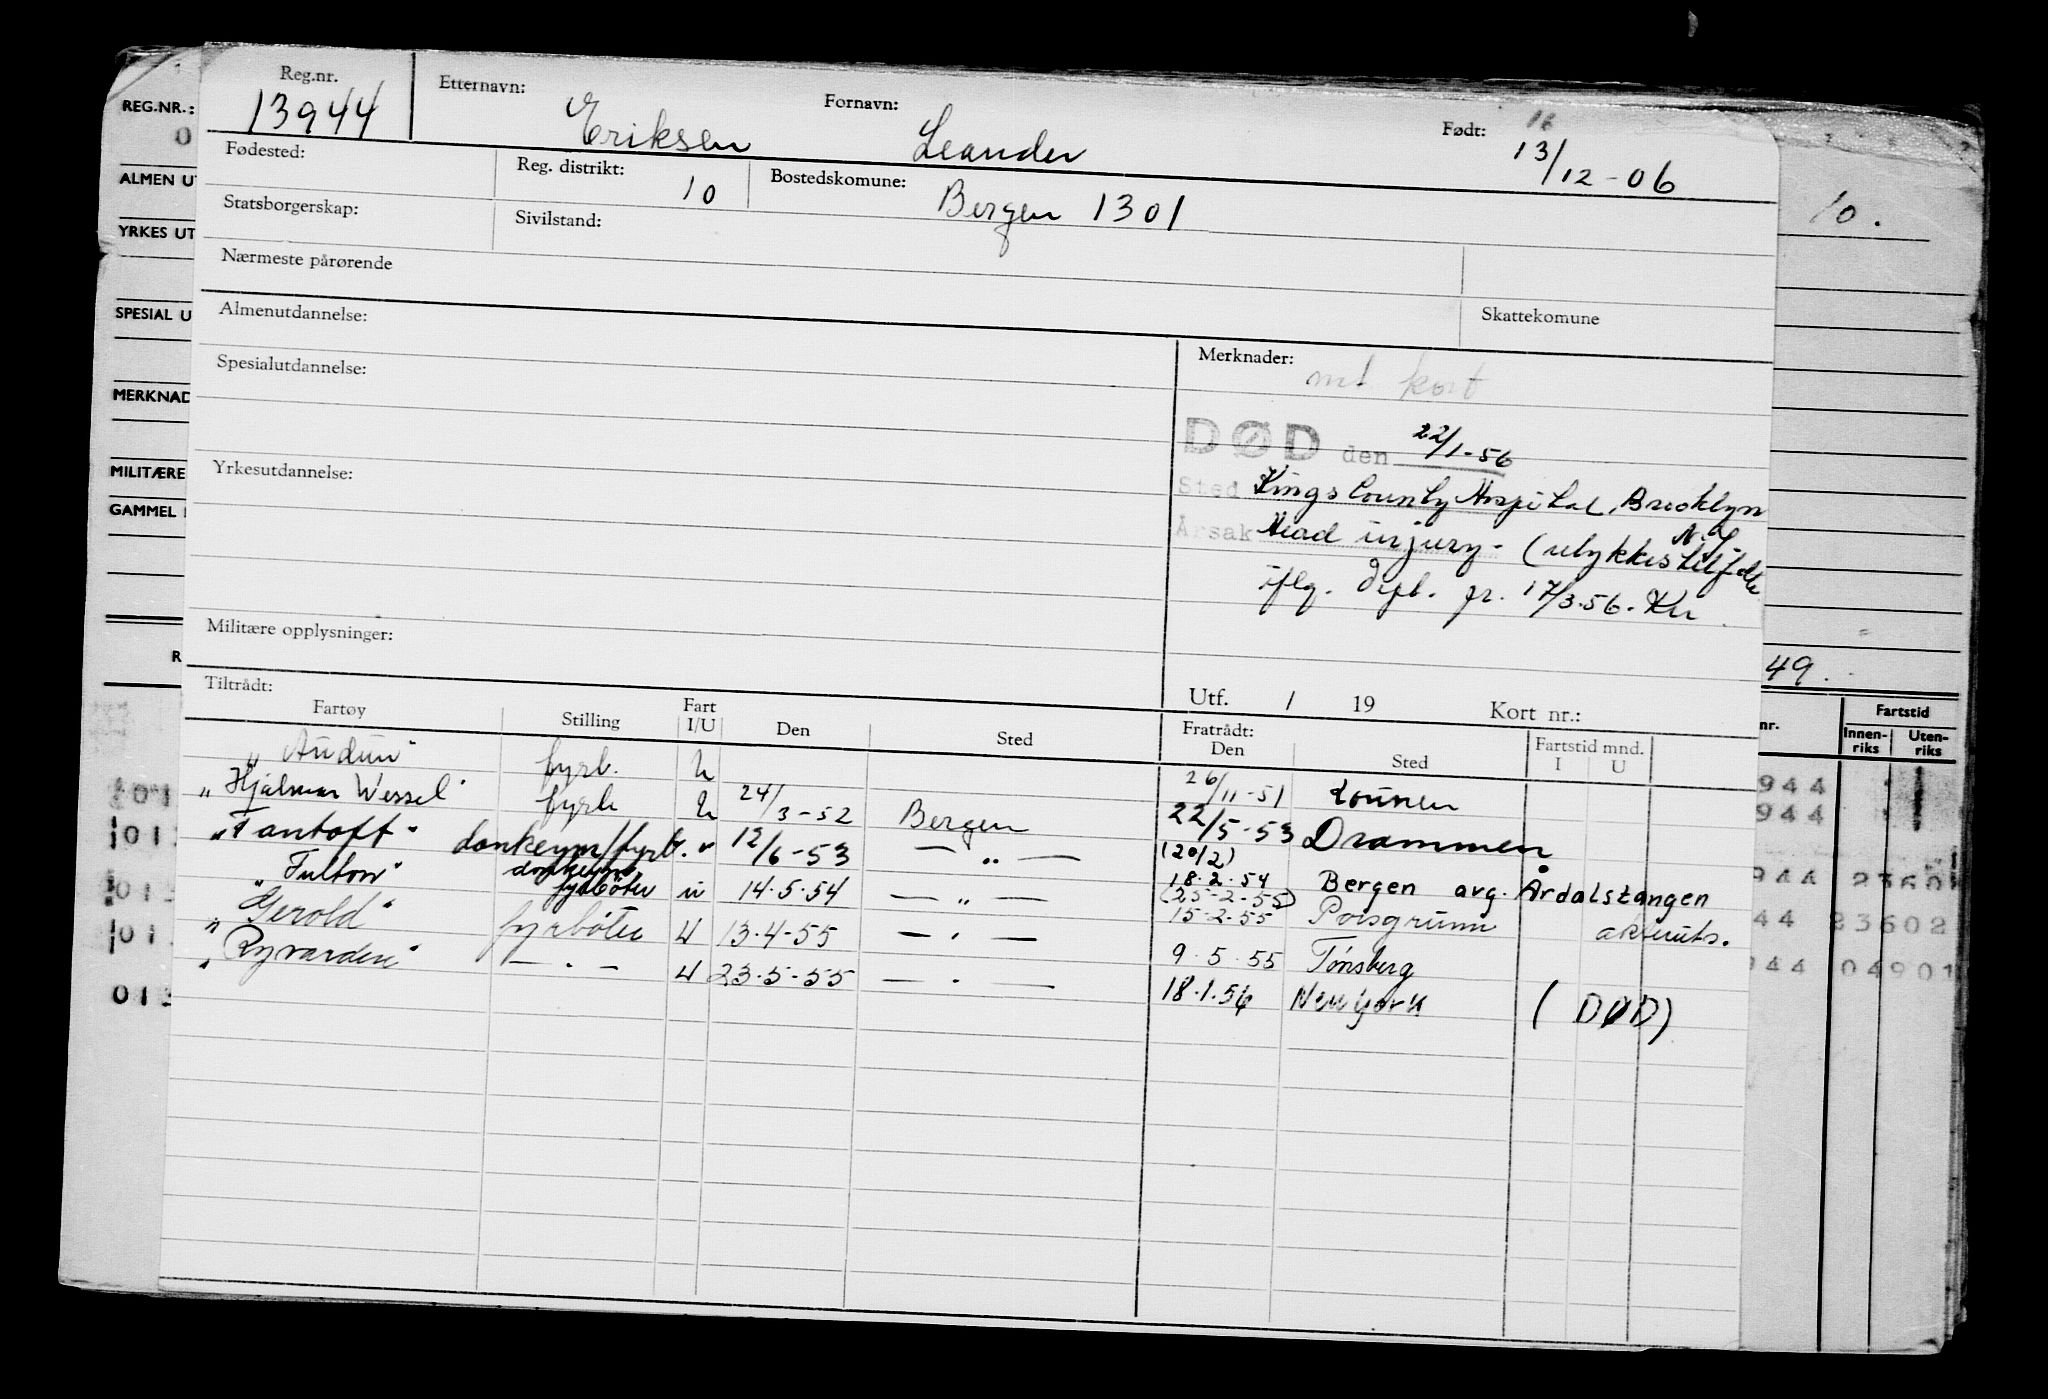 Reg.nr. Etternavn: Fornavn: Født: 16
13944 Eriksen Leander 13/12-06
Fødested: Reg. distrikt: 10 Bostedskomune: Bergen 1301
Statsborgerskap: Sivilstand:
Nærmeste pårørende
Almenutdannelse: Skattekomune
Spesialutdannelse: Merknader:
kort
DØD den 22/1-56
Yrkesutdannelse: Sted Kings County Hospital, Brooklyn
N.Y.
Årsak Head injury - (ulykkestilfelle
iflg. dept. pr. 17/3.56. Kn
Militære opplysninger:
Tiltrådt: Utf. / 19 Kort nr.:
Fartøy Stilling Fart I/U Den Sted Fratrådt: Den Sted Fartstid mnd. I U
"Audun" fyrb. U 26/11-51
"Hjalmar Wessel" fyrb U 24/3-52 Bergen 22/5-53 Drammen
"Fantoft" donkeym/fyrb. " 12/6-53 — " — (20/2) 18.2.54 Bergen avg. Årdalstangen
"Fulton" donkeym fyrbøter u 14.5.54 — " — (25-2-55) 15-2-55 Porsgrunn
"Gerold" fyrbøter U 13.4-55 — " — 9.5.55 Tønsberg
"Ryvarden" — " — U 23.5-55 — " — 18.1.56 New York (DØD)
REG.NR.:
0
ALMEN UT
YRKES UT
SPESIAL U
MERKNAD
MILITÆRE
GAMMEL
R
10.
49.
nr. Fartstid
Innen-riks Uten-riks
944
944
013
944 2360
44 23602
944 04901
013